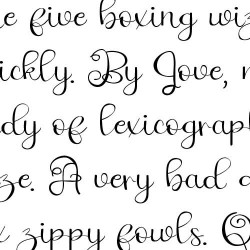 e five boxing wiz
ickly. By Jove, m
dy of lexicograph
ze. A very bad q
x zippy fowls. Q